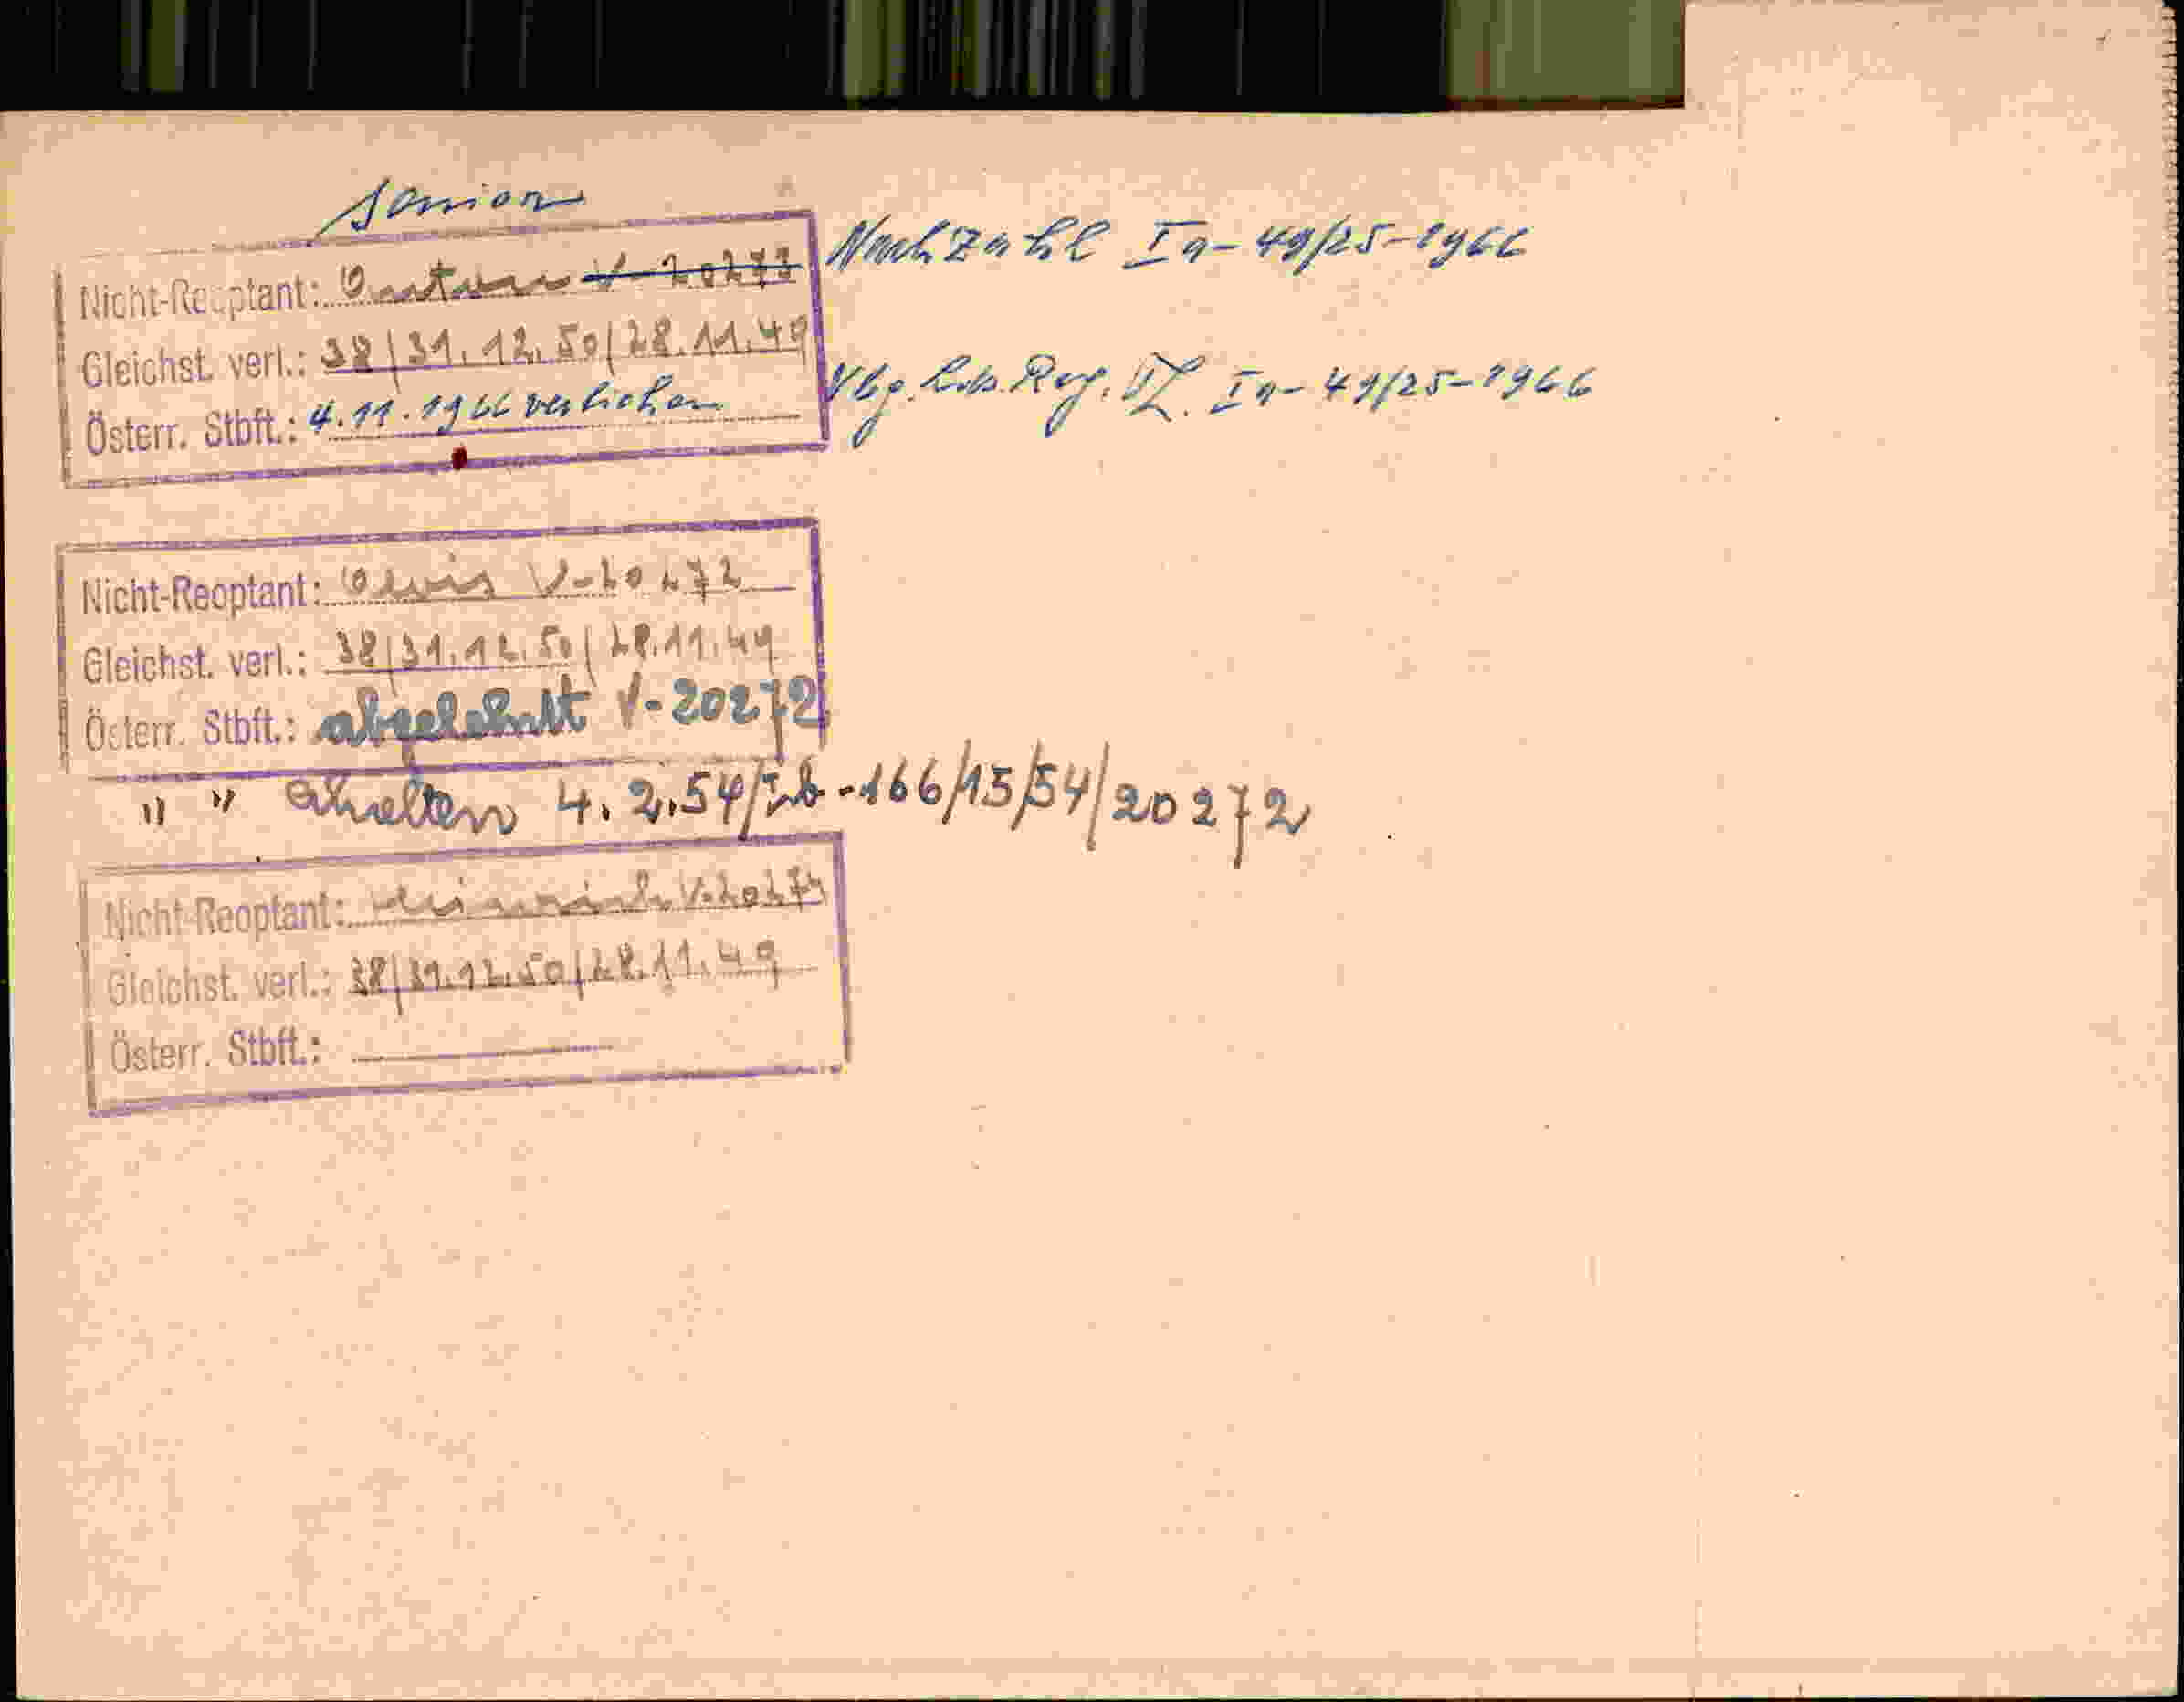 senior
Nicht-Reoptant: Anton V-20273 Nachzahl Ia-49/25-1966
Gleichst. verl.: 38/31.12.50/28.11.49
Österr. Stbft.: 4.11.1966 verliehen Vbg. Lds. Reg. Zl. Ia-49/25-1966
Nicht-Reoptant: Alois V-20272
Gleichst. verl.: 38/31.12.50/28.11.49
Österr. Stbft.: abgelehnt V-20272
" " erhalten 4.2.54/Ib-166/15/54/20272
Nicht-Reoptant: Heinrich V-20274
Gleichst. verl.: 38/31.12.50/28.11.49
Österr. Stbft.: